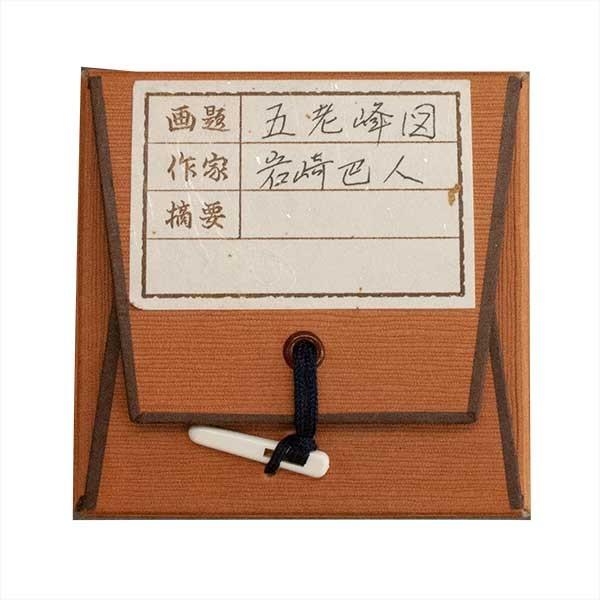 画題 五老峰図
作家 岩崎巴人
摘要